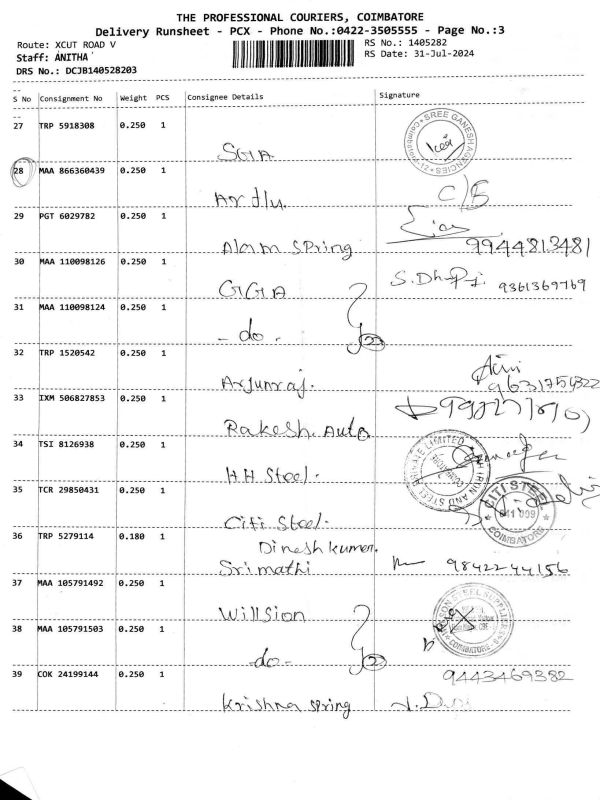 THE PROFESSIONAL COURIERS, COIMBATORE
Delivery Runsheet - PCX - Phone No.:0422-3505555 - Page No.:3
Route: XCUT ROAD V
RS No.: 1405282
Staff: ANITHA
RS Date: 31-Jul-2024
DRS No.: DCJB140528203
S No Consignment No Weight PCS Consignee Details Signature
27 TRP 5918308 0.250 1
SREE GANESH AGENCIES
SGIA
28 MAA 866360439 0.250 1
C/B
29 PGT 6029782 0.250 1
Alam Spring 9944813481
30 MAA 110098126 0.250 1
9361369769
GGIA
31 MAA 110098124 0.250 1
- do -
32 TRP 1520542 0.250 1
Arjunraj.
33 IXM 506827853 0.250 1
Rakesh. Auto
34 TSI 8126938 0.250 1
H.H. Steel.
35 TCR 29850431 0.250 1
CITI STEEL
COIMBATORE
Citi Steel.
36 TRP 5279114 0.180 1
Dinesh kumar.
Srimathi 9842244156
37 MAA 105791492 0.250 1
Willsion
38 MAA 105791503 0.250 1
do-
39 COK 24199144 0.250 1
9443469382
Krishna Spring